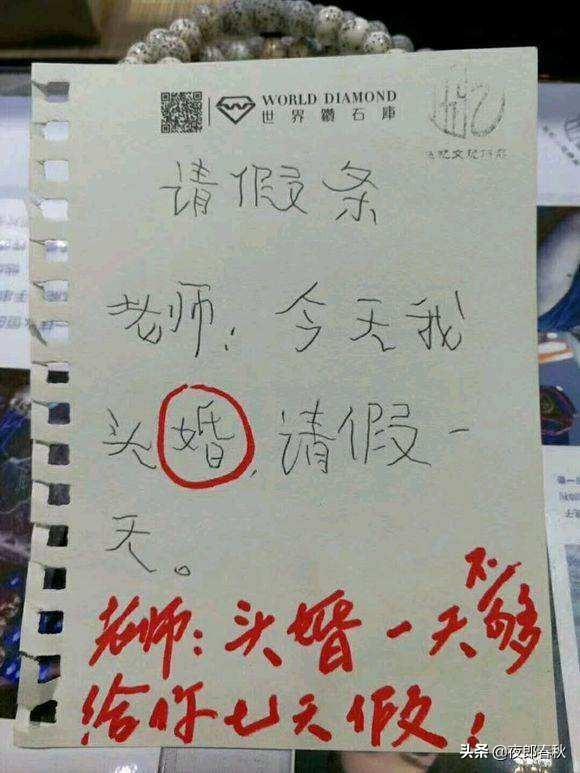 WORLD DIAMOND
世界鑽石庫
请假条
老师：今天我
头婚，请假一
天。
老师：头婚一天不够
给你七天假！
头条 @夜郎春秋